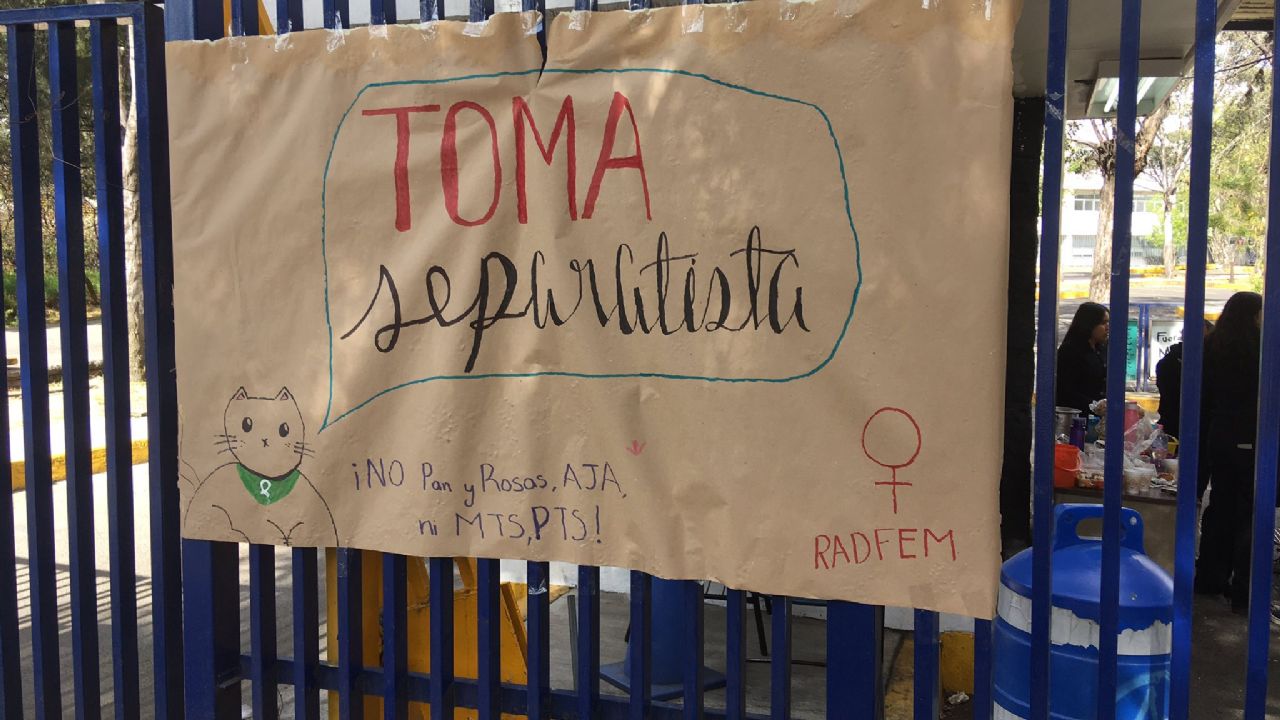 TOMA
separatista
¡NO Pan y Rosas, AJA,
ni MTS, PTS!
RADFEM
Fuera